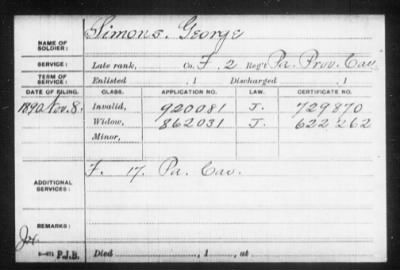 NAME OF SOLDIER: Simons, George
SERVICE: Late rank, Co. F, 2 Reg't Pa. Prov. Cav.
TERM OF SERVICE: Enlisted , 1 Discharged , 1
DATE OF FILING. CLASS. APPLICATION NO. LAW. CERTIFICATE NO.
1890 Nov. 8. Invalid, 920081 J. 729870
Widow, 862031 J. 622262
Minor,
ADDITIONAL SERVICES: F. 17. Pa. Cav.
REMARKS:
P.J.B. Died , 1 , at